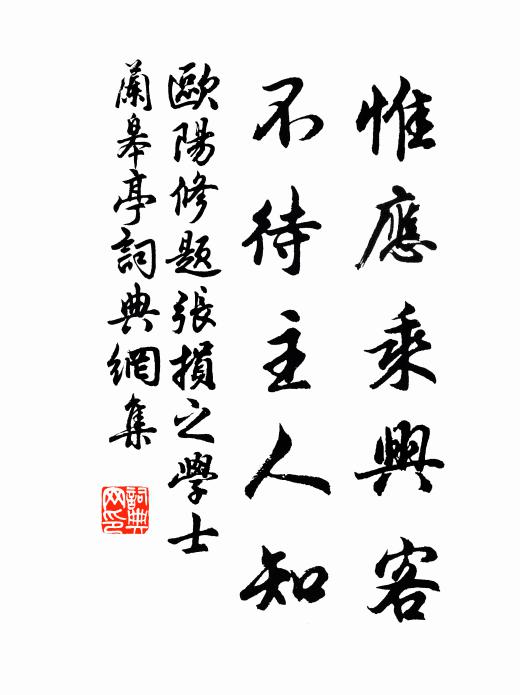 惟應乘興客
不待主人知
歐陽修題張損之學士
蘭皋亭詞典網集
詞典网印